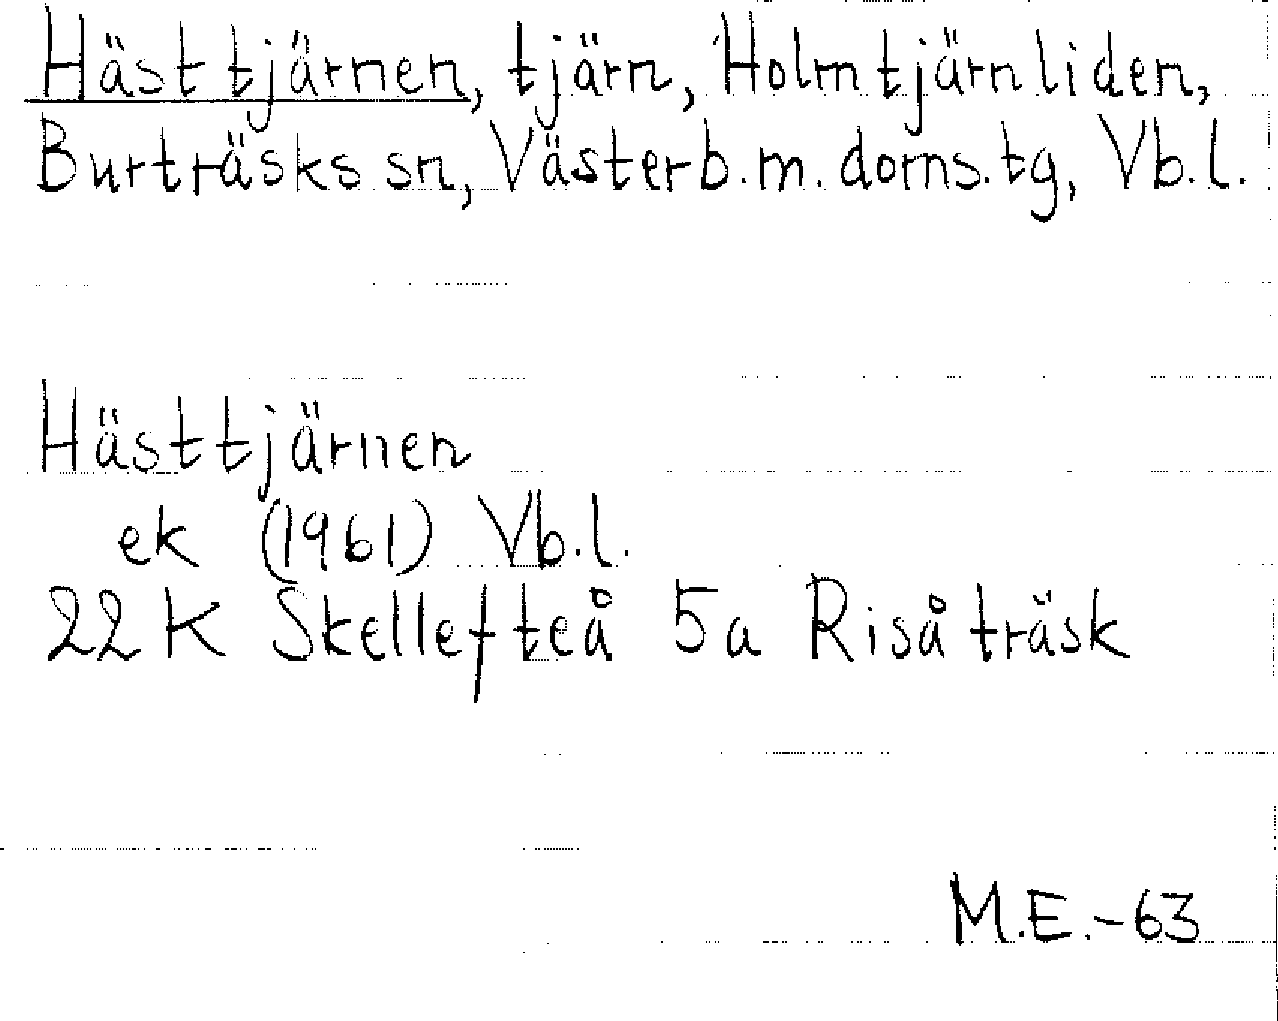 Hästtjärnen, tjärn, Holmtjärnliden,
Burträsks sn, Västerb.m. doms.tg, Vb.l.
Hästtjärnen
ek (1961) Vb.l.
22K Skellefteå 5a Risåträsk
M.E.-63